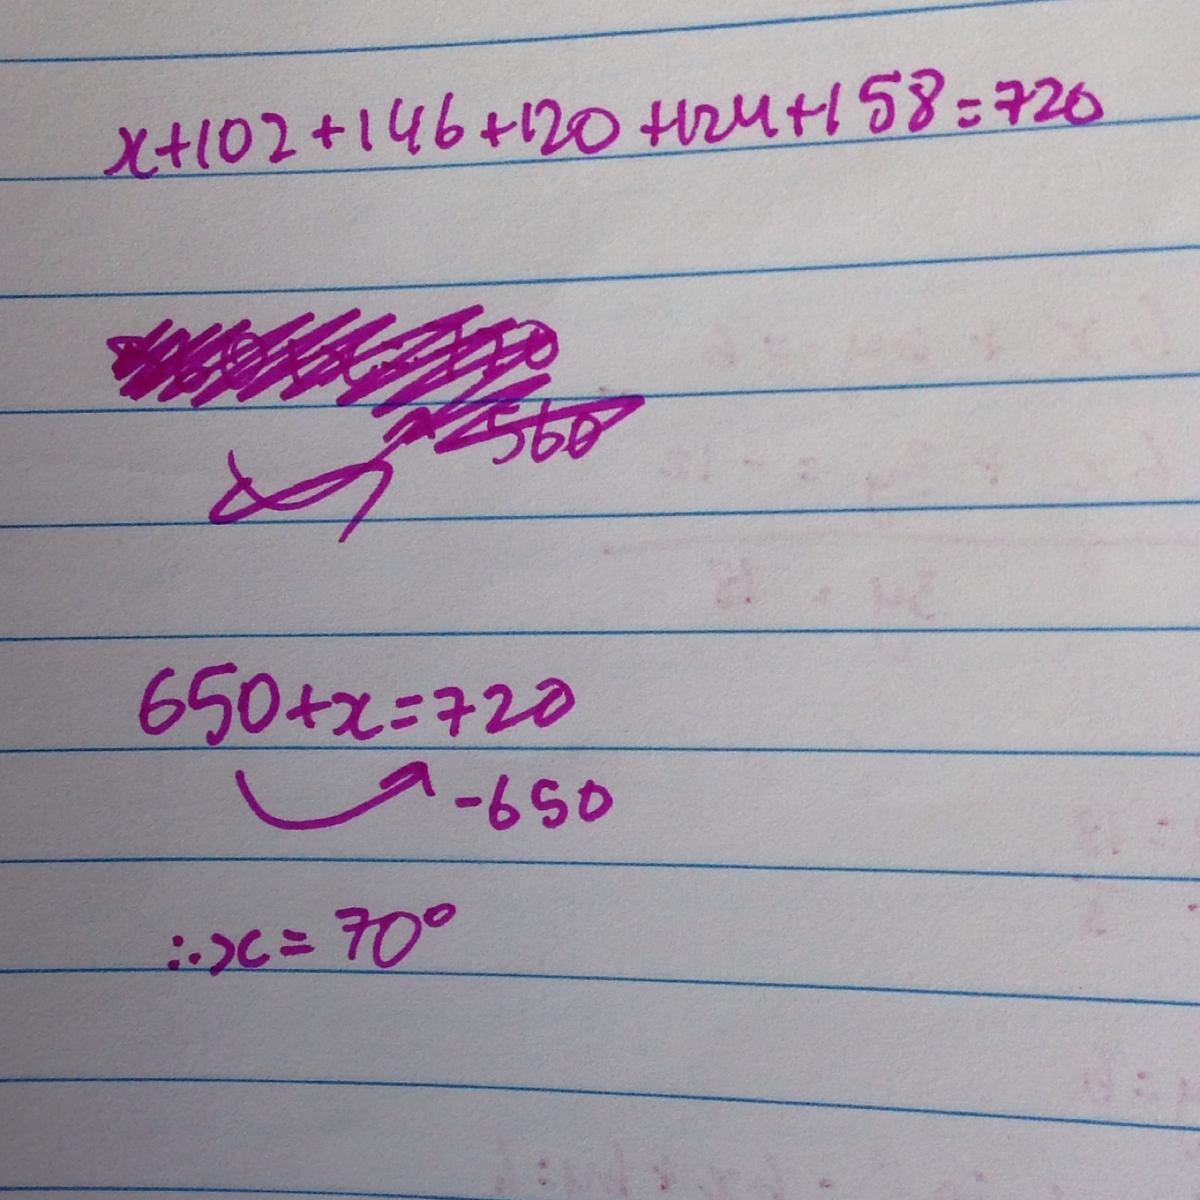 x+102+146+120+124+158=720
560
650+x=720
-650
∴x=70°